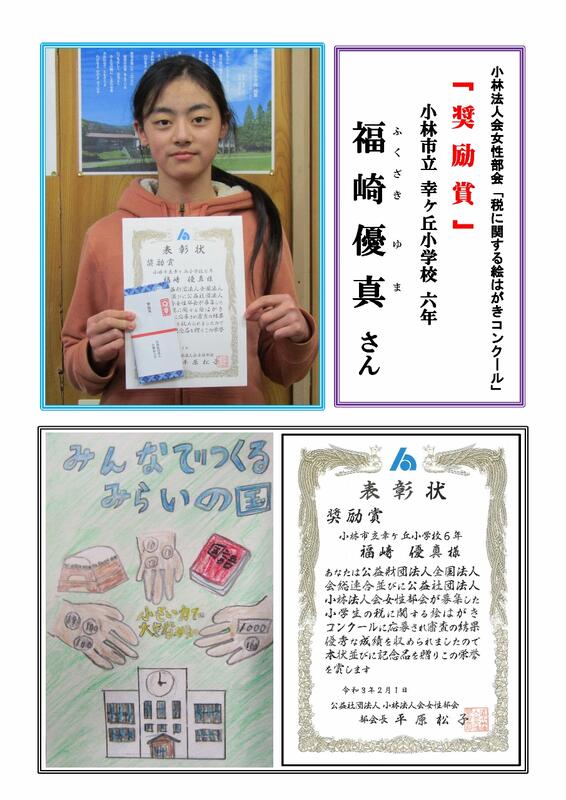 小林法人会女性部会「税に関する絵はがきコンクール」
『奨励賞』
小林市立 幸ヶ丘小学校 六年
福崎優真さん
ふくざき ゆま
表彰状
奨励賞
小林市立幸ヶ丘小学校6年
福崎 優真
みんなでつくる
みらいの国
小さい力で
100
100
1000
表彰状
奨励賞
小林市立幸ヶ丘小学校6年
福崎 優真様
あなたは公益財団法人全国法人
会総連合並びに公益社団法人
小林法人会女性部会が募集した
小学生の税に関する絵はがき
コンクールに応募され審査の結果
優秀な成績を収められましたので
本状並びに記念品を贈りこの栄誉
を賞します
令和3年2月1日
公益社団法人 小林法人会女性部会
部会長 平原松子